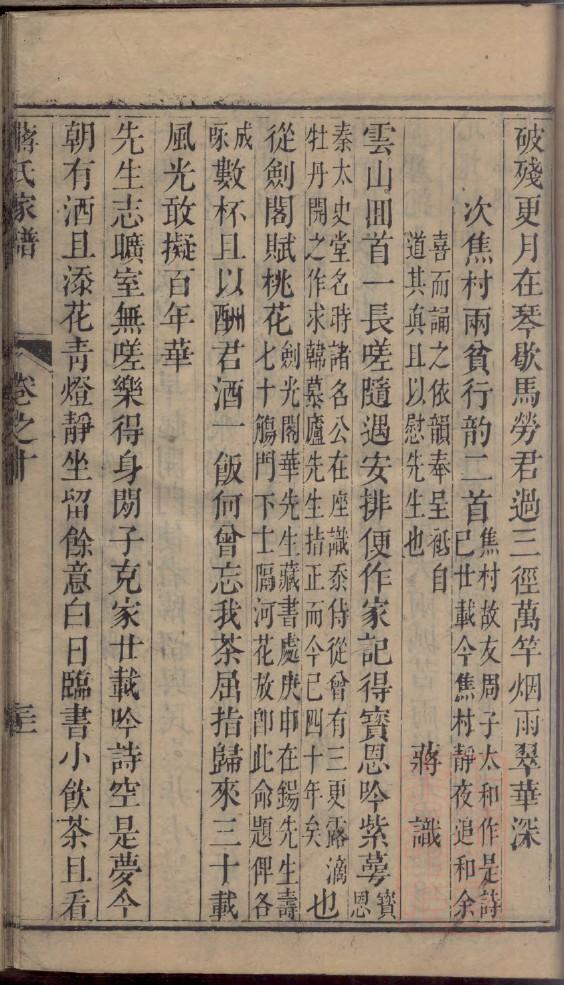 破殘更月在琴歇馬勞君過三徑萬竿烟雨翠華深
次焦村兩貧行韵二首焦村故友周子太和作是詩
已廿載今焦村靜夜追和余
喜而誦之依韻奉呈祗自
道其真且以慰先生也
蔣識
雲山囬首一長嗟隨遇安排便作家記得寶恩吟紫萼寶
恩
秦太史堂名時諸名公在座識忝侍從曾有三更露滴
牡丹開之作求韓慕廬先生指正而今已四十年矣
也
從劍閣賦桃花劍光閣華先生藏書處庚申在錫先生壽
七十觴門下士隔河花放卽此命題俾各
成
豖
數杯且以酬君酒一飯何曾忘我茶屈指歸來三十載
風光敢擬百年華
先生志曠室無嗟樂得身閒子克家廿載吟詩空是夢今
朝有酒且添花青燈靜坐留餘意白日臨書小飲茶且看
蔣氏家譜
卷之十
三三